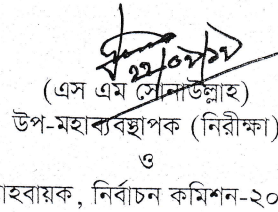 ২২/০২/১২
(এস এম সোনাউল্লাহ)
উপ-মহাব্যবস্থাপক (নিরীক্ষা)
ও
হবায়ক, নির্বাচন কমিশন-২০